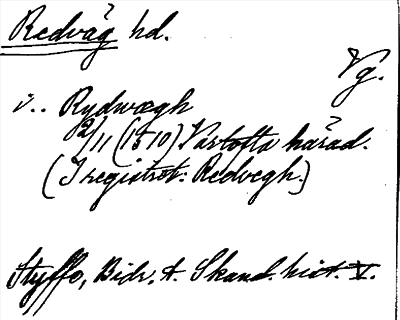 Redväg hd.
Vg.
i.. Rydwægh
2/11 (1510) Vartofta härad.
(I registret: Redvegh.)
Styffe, Bidr. t. Skand. hist. V.